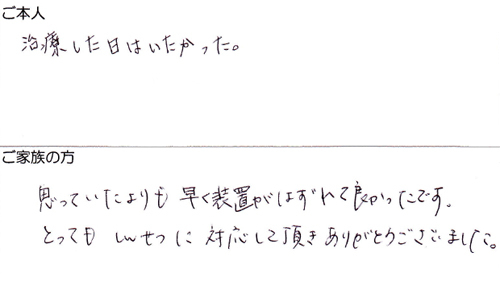 ご本人
治療した日はいたかった。
ご家族の方
思っていたよりも早く装置がはずれて良かったです。
とっても しんせつに対応して頂きありがとうございました。